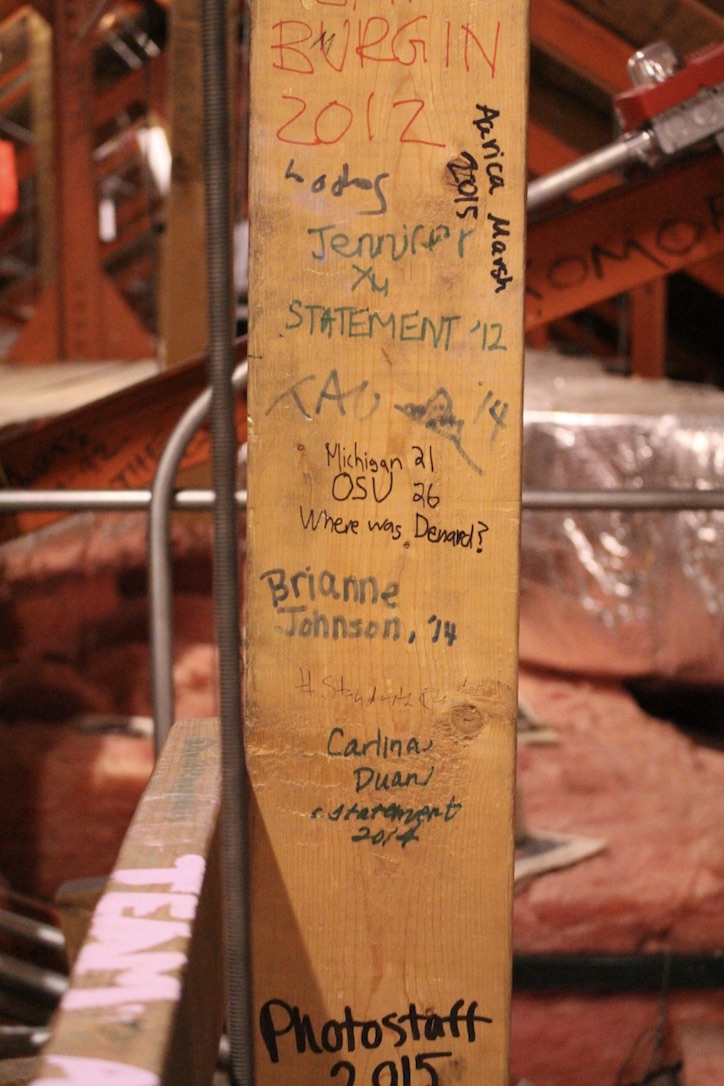 BURGIN
2012
Aarica Marsh
2015
Jennifer
Xu
STATEMENT '12
TAU '14
Michigan 21
OSU 26
Where was Denard?
Brianne
Johnson, '14
Carlina
Duan
statement
2014
TEAM
Photostaff
2015